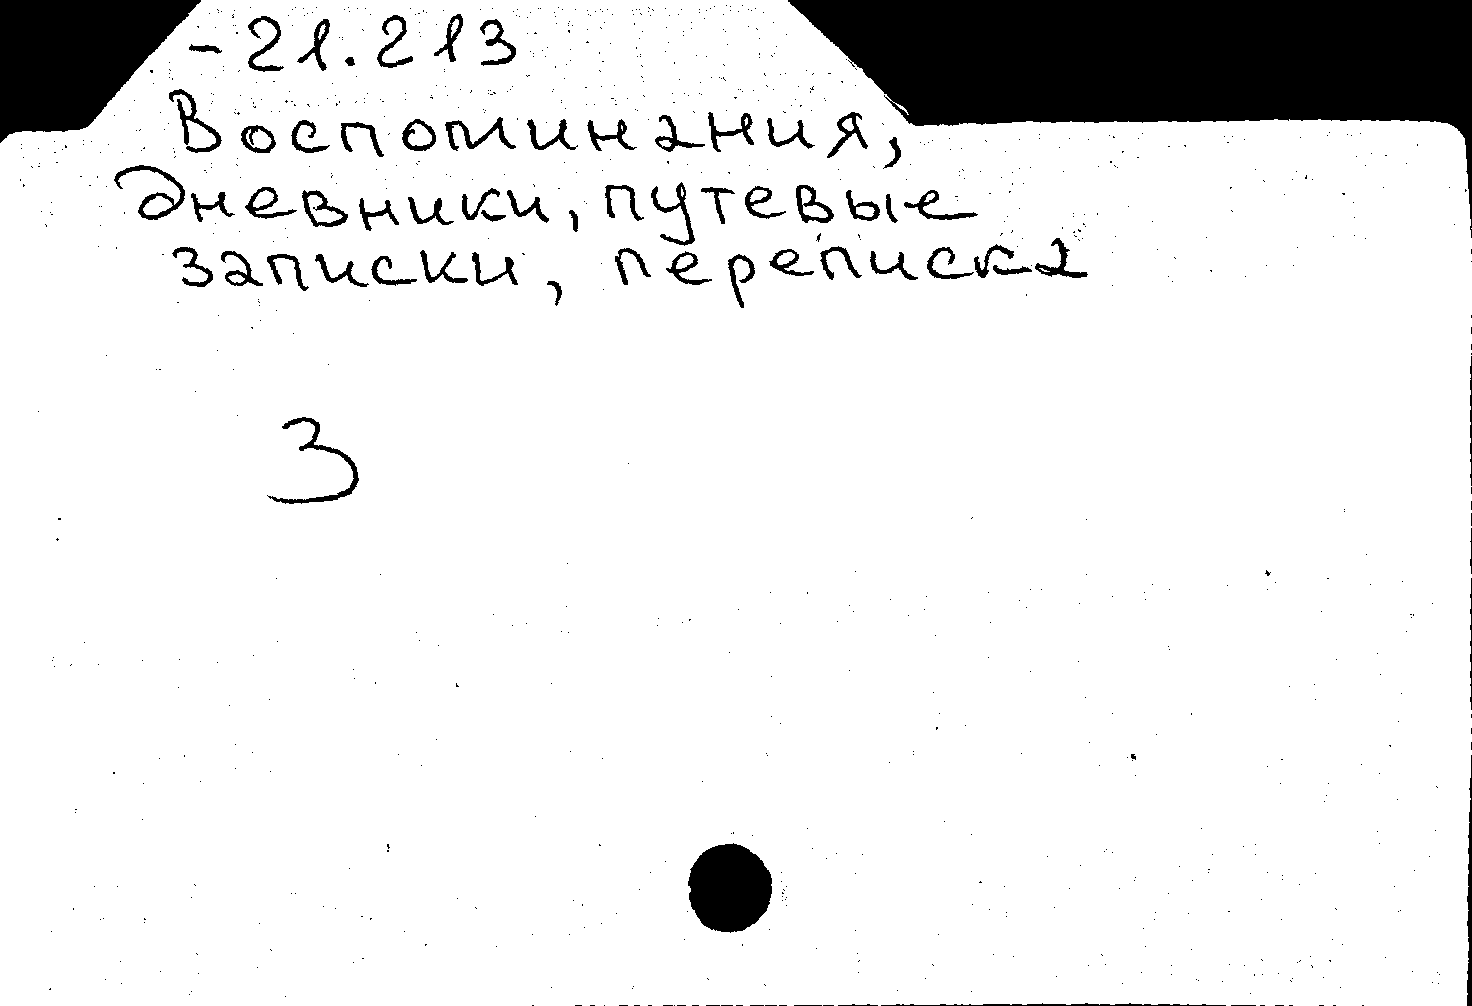 -21.213
Воспоминания,
дневники, путевые
записки, переписка
3